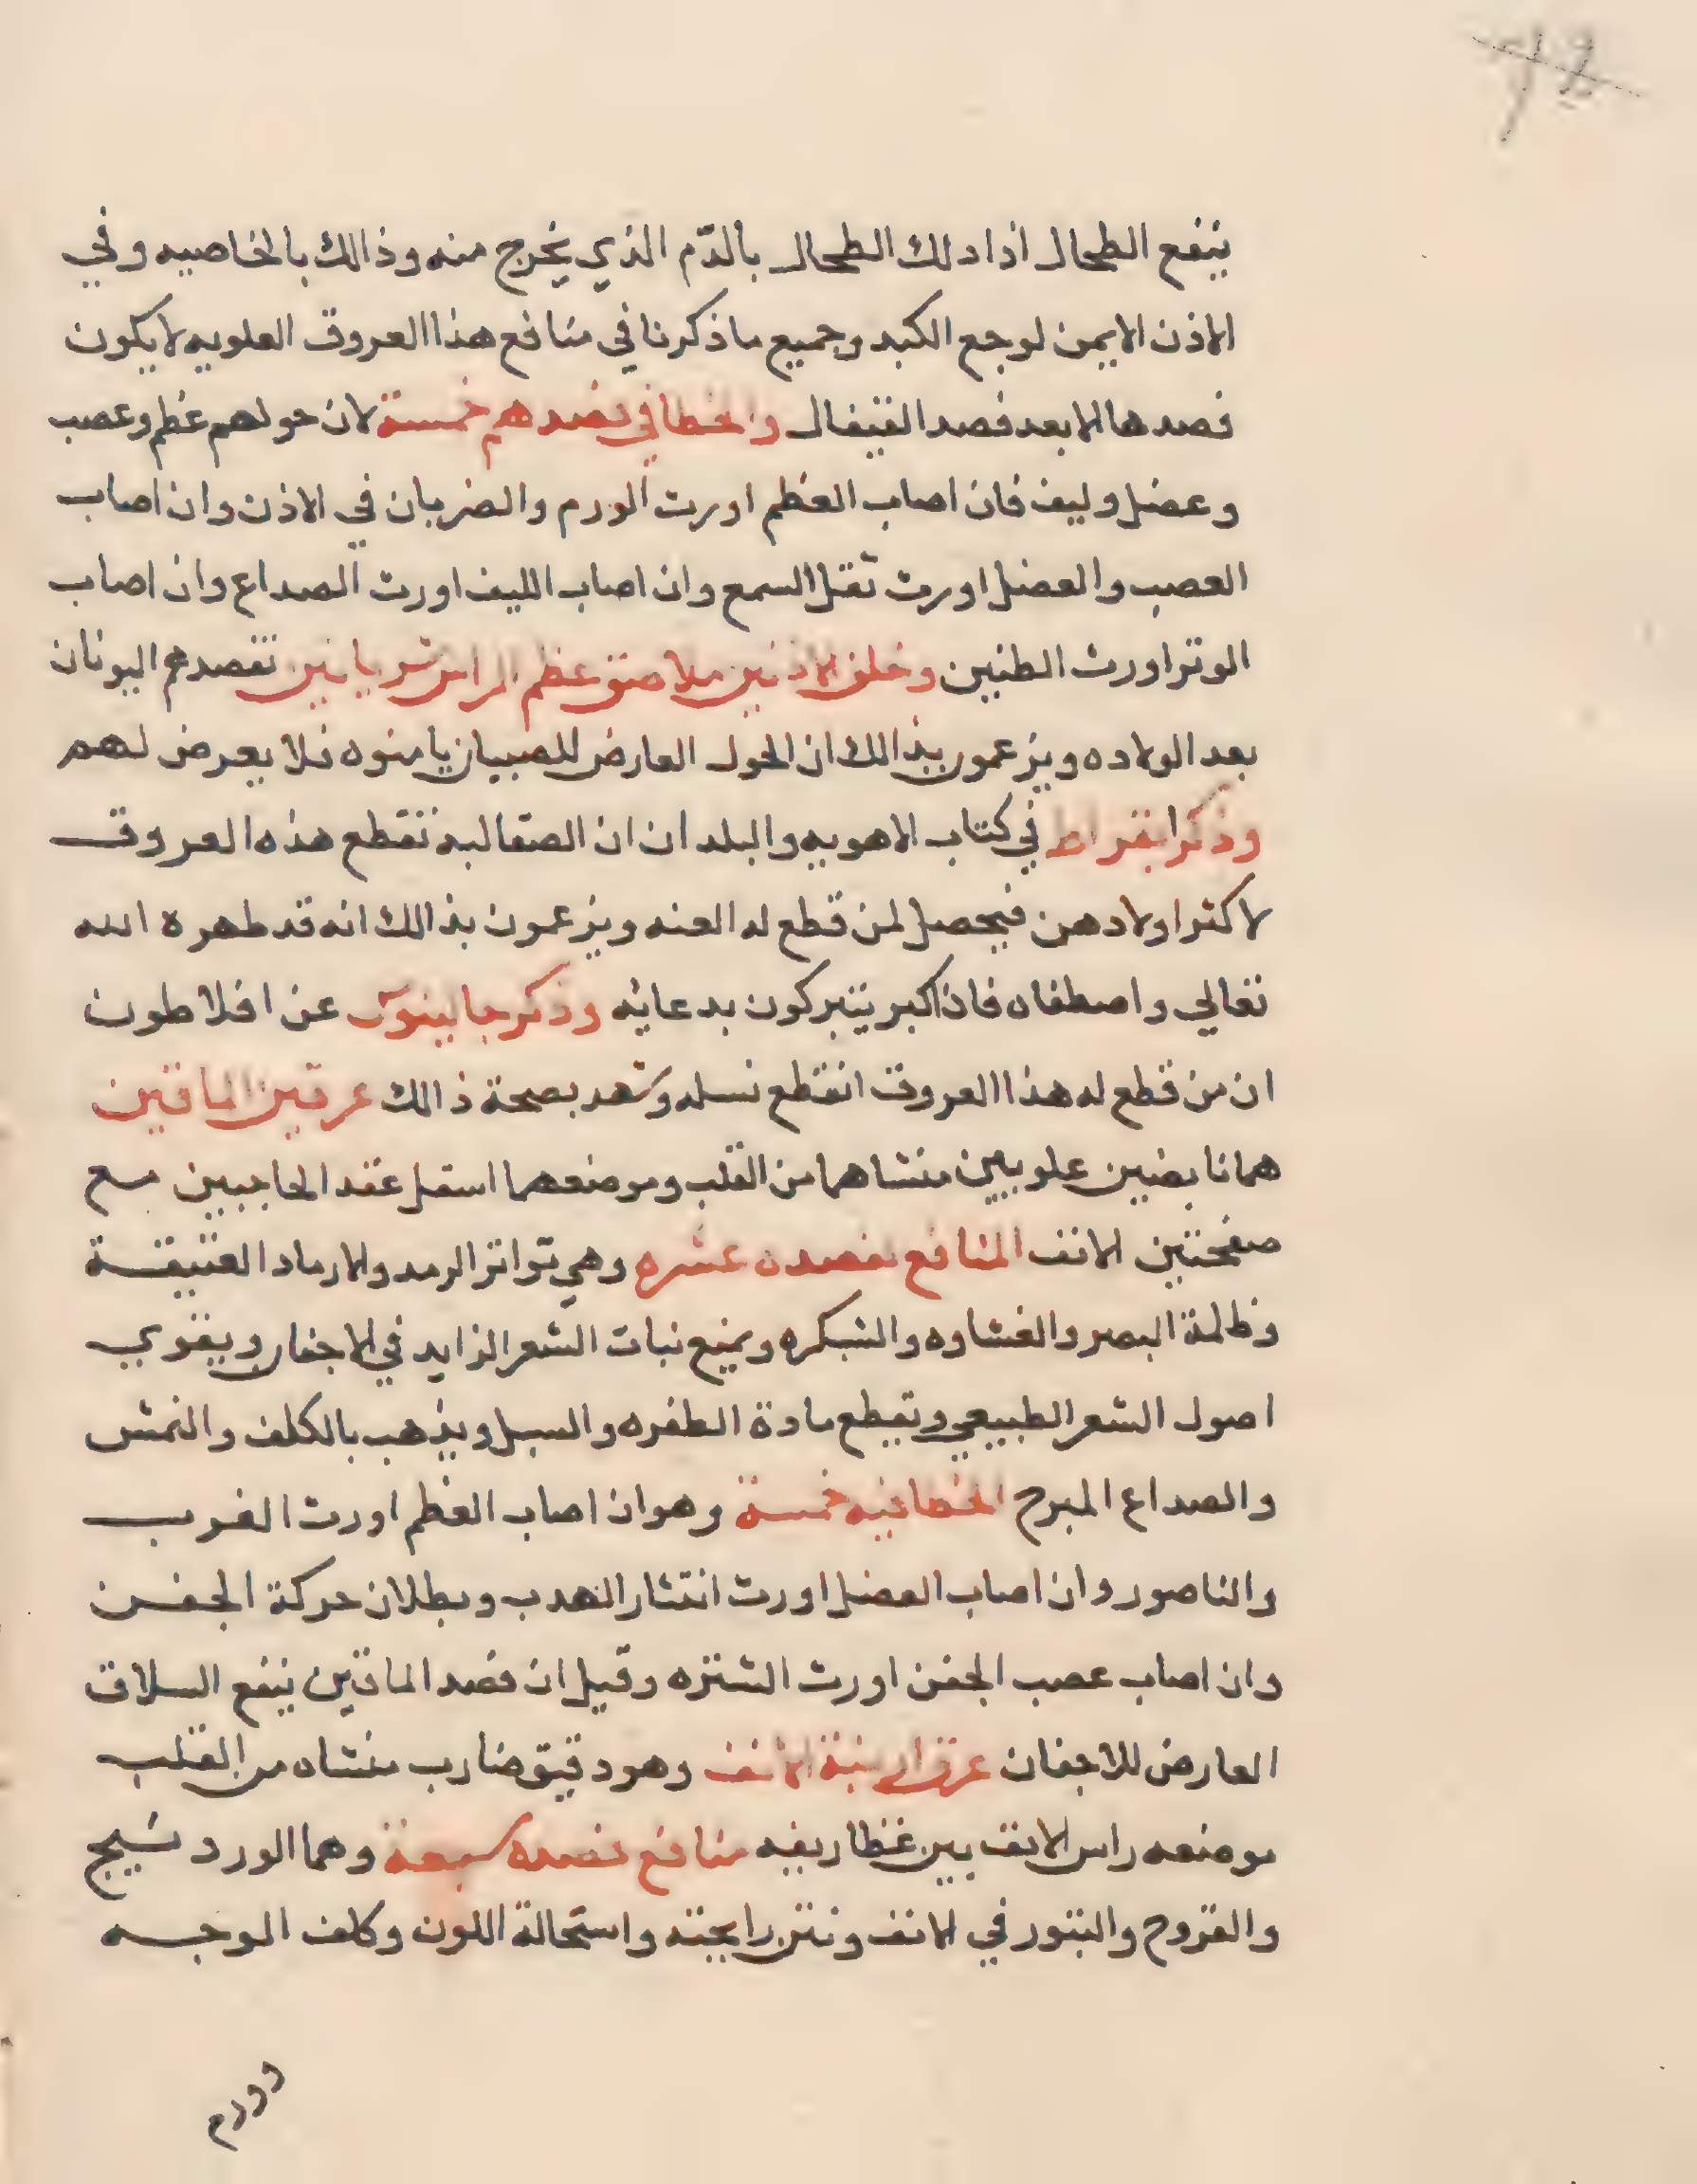 ينفع الطحال اذا دلك الطحال بالدّم الذي يخرج منه وذالك بالخاصيه وفي
الاذن الايمن لوجع الكبد وجميع ما ذكرنا في منافع هذا العروق العلويه لا يكون
فصدها الا بعد فصد القيفال والخطا في فصدهم خمسة لان حولهم عظم وعصب
وعضل وليف فان اصاب العظم اورث الورم والضربان في الاذن وان اصاب
العصب والعضل اورث ثقل السمع وان اصاب الليف اورث الصداع وان اصاب
الوتر اورث الطنين وخلف الاذنين ملاصق عظم الراس شريانين تفصدهم اليونان
بعد الولاده ويزعمون بذالك ان الحول العارض للصبيان يامنوه فلا يعرض لهم
وذكر ابقراط في كتاب الاهويه والبلدان ان الصقالبة تقطع هذه العروق
لاكثر اولادهن فيحصل لمن قطع له العنه ويزعمون بذالك انه قد طهره الله
تعالي واصطفاه فاذا كبر يتبركون بدعايه وذكر جالينوس عن افلاطون
ان من قطع له هذا العروق انقطع نسله وشهد بصحة ذالك عرقين الماقين
هما نابضين علويين منشاهما من القلب وموضعهما اسفل عقد الحاجبين مع
صفحتين الانف المنافع لفصده عشره وهي تواتر الرمد والارماد العتيقة
وظلمة البصر والغشاوه والشبكره ويمنع نبات الشعر الزايد في الاجفان ويقوي
اصول الشعر الطبيعي ويقطع مادة الظفره والسبل ويذهب بالكلف والنمش
والصداع المبرح الخطا فيه خمسة وهو ان اصاب العظم اورث الغرب
والناصور وان اصاب العضل اورث انتشار الهدب وبطلان حركة الجفن
وان اصاب عصب الجفن اورث الشتره وقيل ان فصد الماقين ينفع السلاق
العارض للاجفان عرق ارنبة الانف وهو دقيق ضارب منشاه من القلب
موضعه راس الانف بين غظاريفه منافع فصده سبعة وهما الورد
والقروح والبثور في الانف ونتن رايحته واستحالة اللون وكلف الوجه
وورم